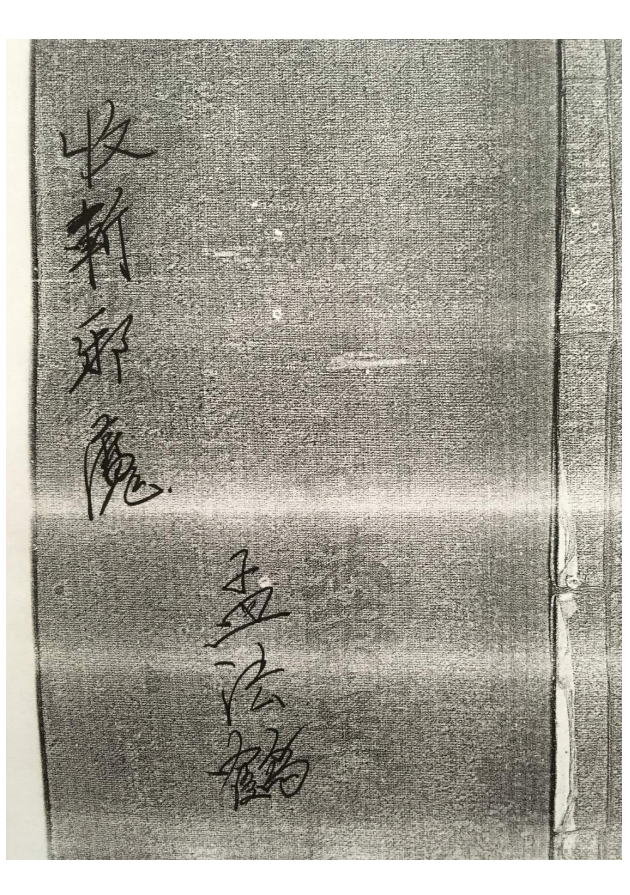 收斬邪魔
孟法鶴